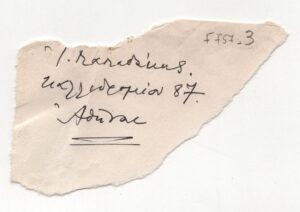 F751-3
Ἰ. Παπαδάκης.
Καλλιδρομίου 87.
Ἀθῆναι